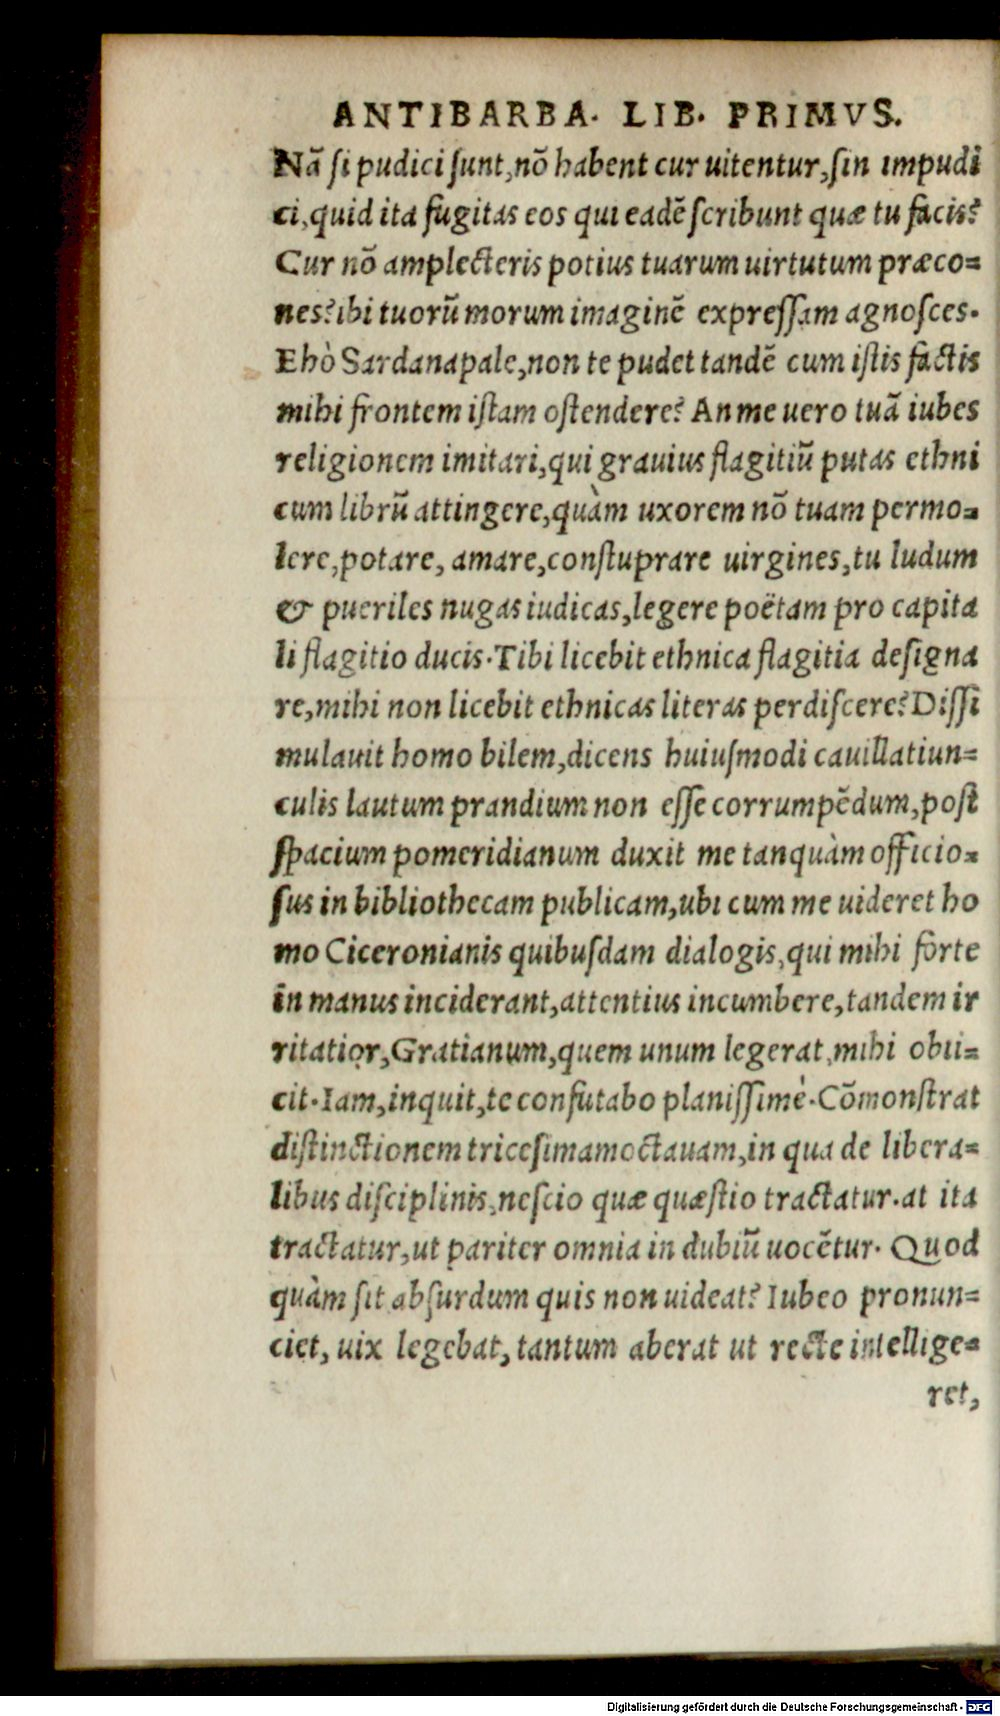 ANTIBARBA. LIB. PRIMVS.
Nã ſi pudici ſunt, nõ habent cur uitentur, ſin impudi
ci, quid ita fugitas eos qui eadẽ ſcribunt quæ tu facis?
Cur nõ amplecteris potius tuarum uirtutum præco=
nes? ibi tuorũ morum imaginẽ expreſſam agnoſces.
Ehò Sardanapale, non te pudet tandẽ cum iſtis factis
mihi frontem iſtam oſtendere? An me uero tuã iubes
religionem imitari, qui grauius flagitiũ putas ethni
cum librũ attingere, quàm uxorem nõ tuam permo=
lere, potare, amare, conſtuprare uirgines, tu ludum
& pueriles nugas iudicas, legere poëtam pro capita
li flagitio ducis. Tibi licebit ethnica flagitia deſigna
re, mihi non licebit ethnicas literas perdiſcere? Diſſi
mulauit homo bilem, dicens huiuſmodi cauillatiun=
culis lautum prandium non eſſe corrumpẽdum, poſt
ſpacium pomeridianum duxit me tanquàm officio=
ſus in bibliothecam publicam, ubi cum me uideret ho
mo Ciceronianis quibuſdam dialogis, qui mihi forte
in manus inciderant, attentius incumbere, tandem ir
ritatior, Gratianum, quem unum legerat, mihi obii=
cit. Iam, inquit, te confutabo planiſſimè. Cõmonſtrat
diſtinctionem triceſimamoctauam, in qua de libera=
libus diſciplinis, neſcio quæ quæſtio tractatur. at ita
tractatur, ut pariter omnia in dubiũ uocẽtur. Quod
quàm ſit abſurdum quis non uideat? Iubeo pronun=
ciet, uix legebat, tantum aberat ut recte intellige=
ret,
Digitalisierung gefördert durch die Deutsche Forschungsgemeinschaft - DFG